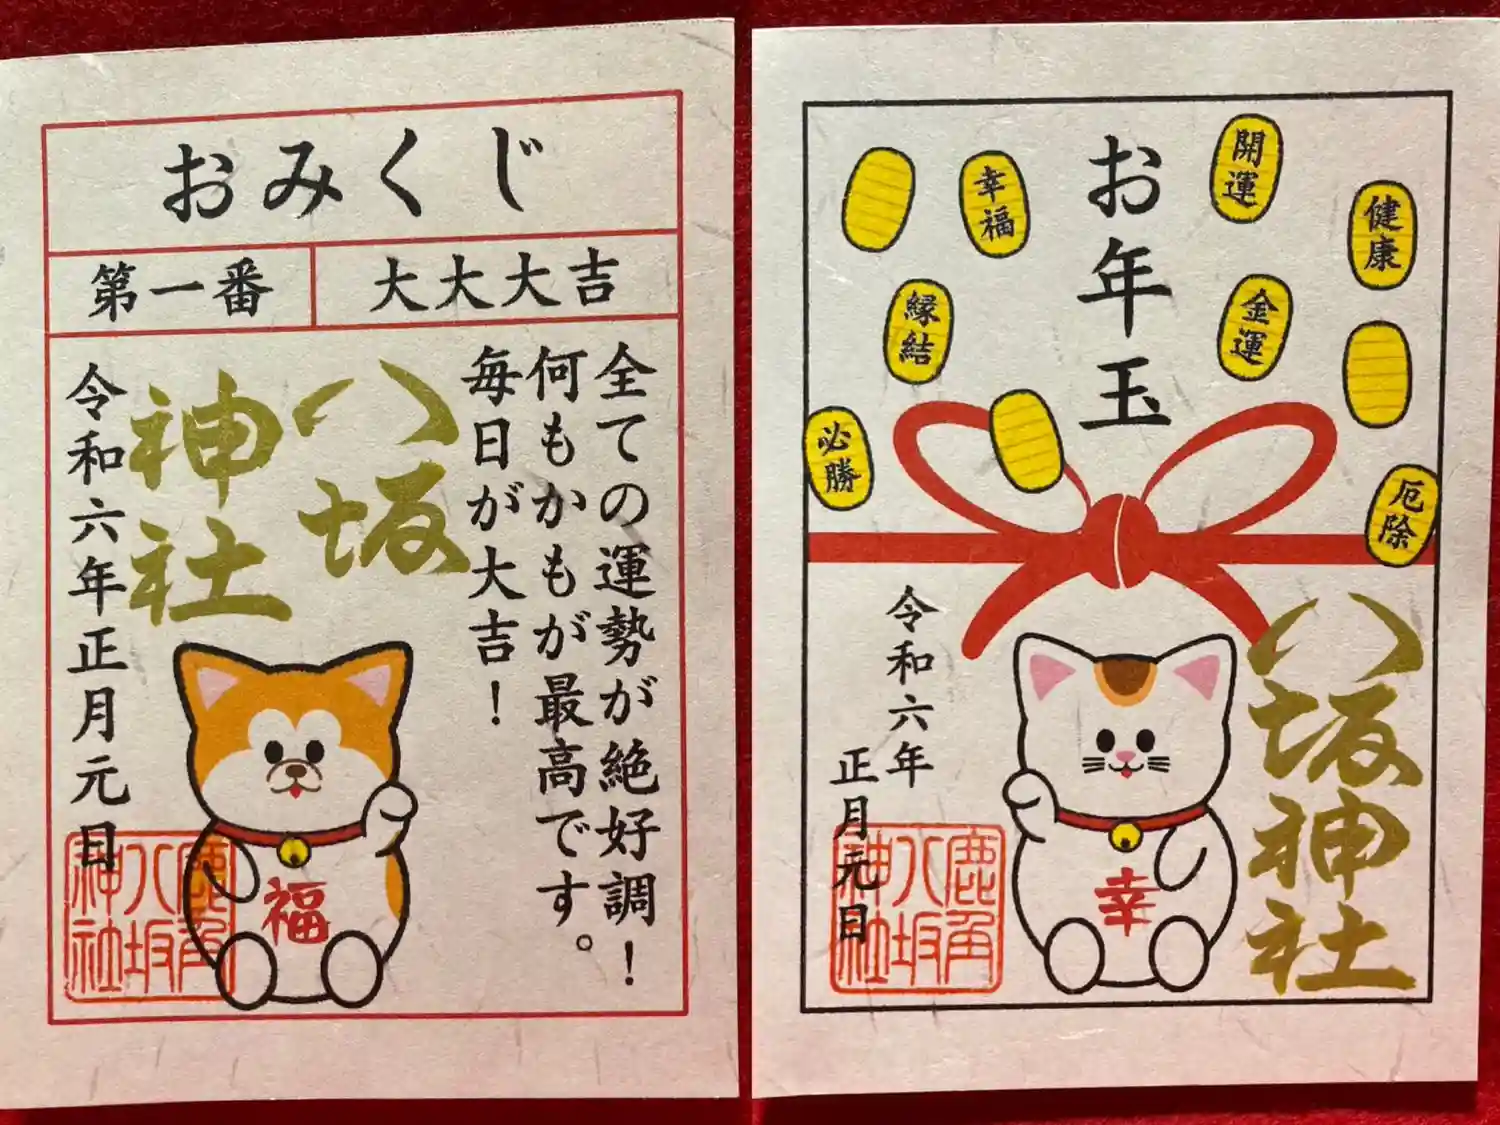 おみくじ
第一番
大大大吉
全ての運勢が絶好調！
何もかもが最高です。
毎日が大吉！
八坂
神社
令和六年正月元日
福
鹿角
八坂
神社
お年玉
幸福
開運
健康
縁結
金運
必勝
厄除
八坂神社
令和六年
正月元日
幸
鹿角
八坂
神社